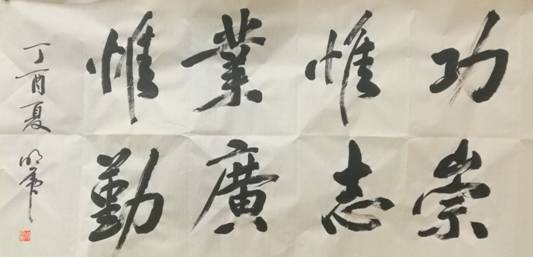 功崇
惟志
業廣
惟勤
丁酉夏